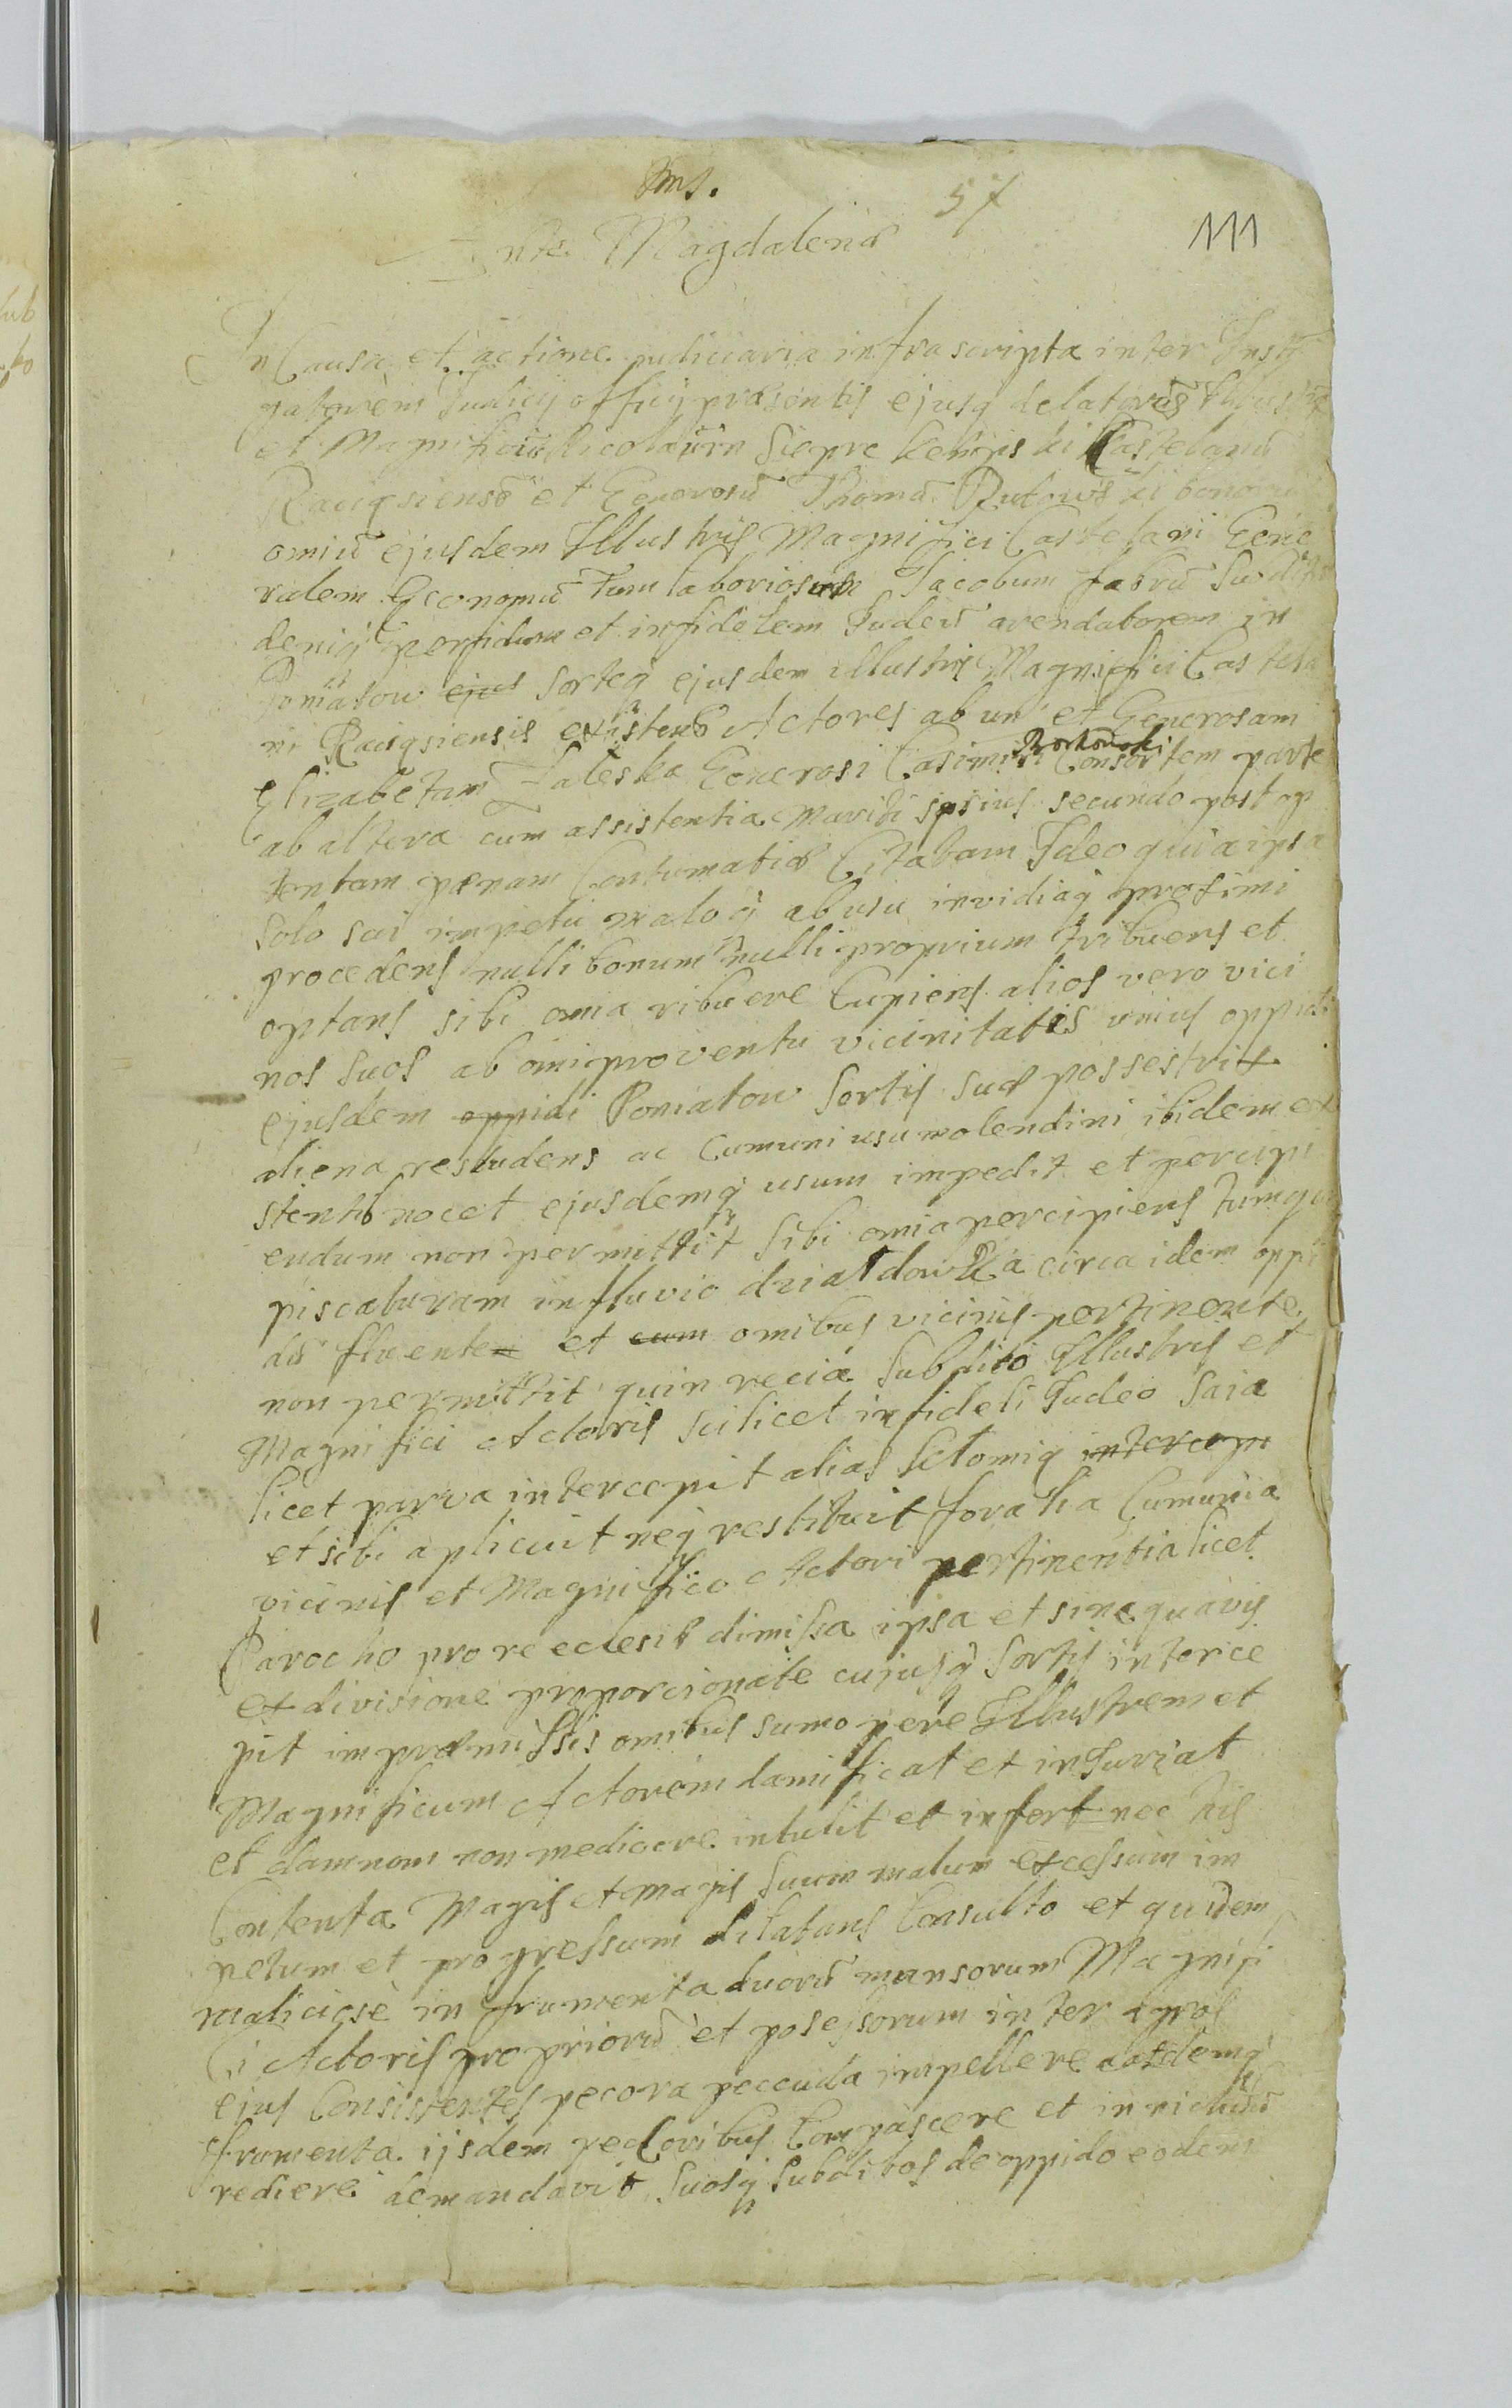 57
111
Ante Magdalenæ
In Causa et actione judiciaria infrascripta inter Insti
gatorem Judicij officij præsentis ejusq delatorūs Illustrē
et Magnificū Nicolaum Sieprc Kengis ki Castelanū
Raciąsiensē et Generosū Thomā Rutows ki bonorū
omiū ejusdem Illustris Magnifici Castelani Gene
ralem Œconomū tum laboriosum Jacobum fabrū Subditū
deniq perfidum et infidelem Judeū arendatorem in
Poniatow ejus Sorteq ejusdem illustris Magnifici Castela
ni Raciąsiensis existens Actores ab un et Generosam
Elizabetam Zaleska Generosi Casimiri Borkowski Consortem parte
ab altera cum assistentia mariti ipsius secundo post op
tentam pænam Contumatiæ Citatam Ideo quia ipsa
solo sui impetu maloq abusu invidiaq proximi
procedens nulli bonum nulli proprium tribuens et
optans sibi omia ribuere Cupiens alios vero vici
nos suos ab omi proventu vicinitatis unius oppidi
ejusdem oppidi Poniatow Sortis suæ possestrix
aliena resludens ac Cumuni usu molendini ibidem ex
stenti nocet ejusdemq usum impedit et percipi
endum non permittit Sibi omia percipiens tumq
piscaturam in fluvio dzialdowka circa idem oppi
dū fluente et cum omibus vicinis pertinente
non permittit quin recia Subdito Illustris et
Magnifici Actoris scilicet infideli Judeo Saia
licet parva intercepit alias Sclomiq intercepi
et sibi aplicuit neq restituit foralia Cumunia
vicinis et Magnifico Actori pertinentia licet
Parocho pro re eclesiæ dimissa ipsa et sine quavis
ex divisione proporcionate cujusq Sortis interce
pit in præmissis omibus sumopere Illustrem et
Magnificum Actorem damificat et injuriat
et damnom non mediocre intulit et infert nec his
Contenta Magis et magis Suum malum excessum im
petum et progressum dilatans Consulto et quidem
maliciose in frumenta duorū mansorum Magnifi
ci Actoris propriorū et posessorum inter agros
ejus Consistentes pecora peccuda impellere eademq
frumenta ijsdem peccoribus Compascere et in nichilū
rediere demandavit Suosq Subditos de oppido eodem